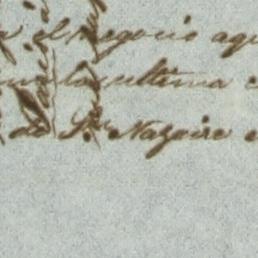 el negocio aqu
la ultima
de St. Nazaire